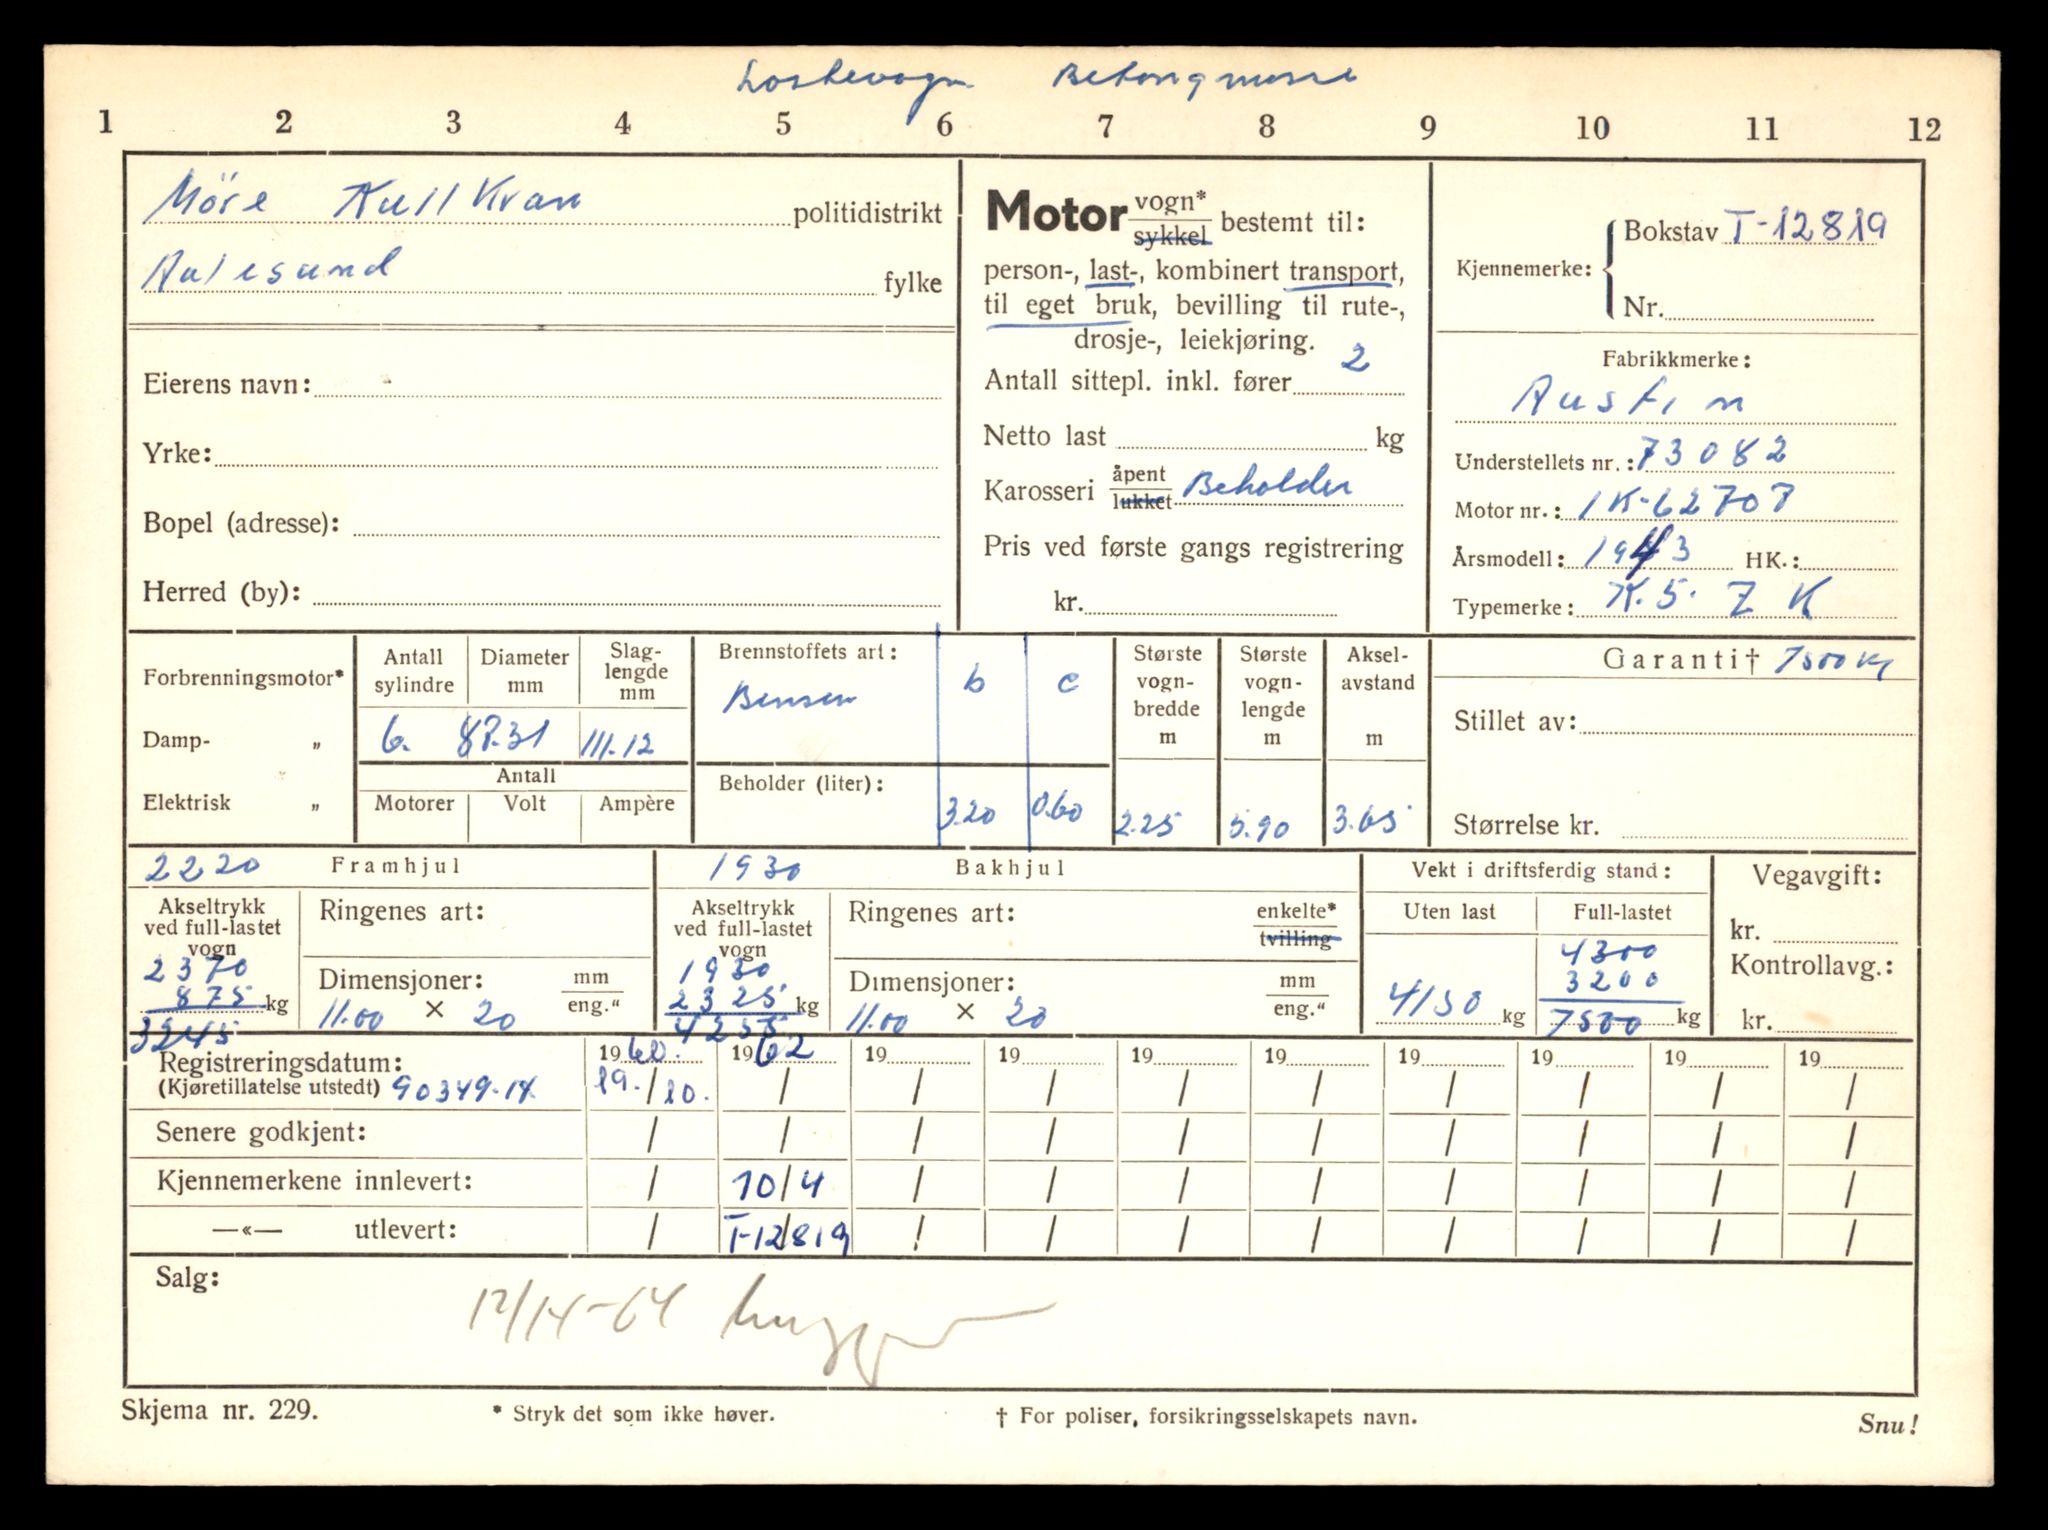 Lastevogn Betongmasse
1 2 3 4 5 6 7 8 9 10 11 12
Möre Kull Kran politidistrikt
Aalesund fylke
Eierens navn:
Yrke:
Bopel (adresse):
Herred (by):
Motor vogn* sykkel bestemt til:
person-, last-, kombinert transport,
til eget bruk, bevilling til rute-,
drosje-, leiekjøring.
Antall sittepl. inkl. fører 2
Netto last kg
Karosseri åpent lukket Beholder
Pris ved første gangs registrering
kr.
Kjennemerke: Bokstav T-12819
Nr.
Fabrikkmerke:
Austin
Understellets nr.: 73082
Motor nr.: 1K-62707
Årsmodell: 1943 HK.:
Typemerke: K.5. Z K
Forbrenningsmotor*
Damp- „
Elektrisk „
Antall sylindre
Diameter mm
Slag-
lengde
mm
6. 87.31 111.12
Antall
Motorer Volt Ampère
Brennstoffets art:
Bensin
b c
Beholder (liter):
3.20 0.60
Største
vogn-
bredde
m
2.25
Største
vogn-
lengde
m
5.90
Aksel-
avstand
m
3.65
Garanti† 7500 kg
Stillet av:
Størrelse kr.
2220 Framhjul
Akseltrykk
ved full-lastet
vogn
2370
875 kg
3245
Ringenes art:
Dimensjoner: mm eng."
11.00 × 20
1930 Bakhjul
Akseltrykk
ved full-lastet
vogn
1930
2325 kg
4255
Ringenes art: enkelte* tvilling
Dimensjoner: mm eng."
11.00 × 20
Vekt i driftsferdig stand:
Uten last Full-lastet
4300
3200
4150 kg 7500 kg
Vegavgift:
kr.
Kontrollavg.:
kr.
Registreringsdatum: 1960. 1962 19 19 19 19 19 19 19 19
(Kjøretillatelse utstedt) 90349.14. 19. / 10. / / / / / / / / /
Senere godkjent: / / / / / / / / / /
Kjennemerkene innlevert: / 10/4 / / / / / / / /
—«— utlevert: / T-12819 / / / / / / / /
Salg:
12/14-64
Skjema nr. 229. * Stryk det som ikke høver. † For poliser, forsikringsselskapets navn. Snu!